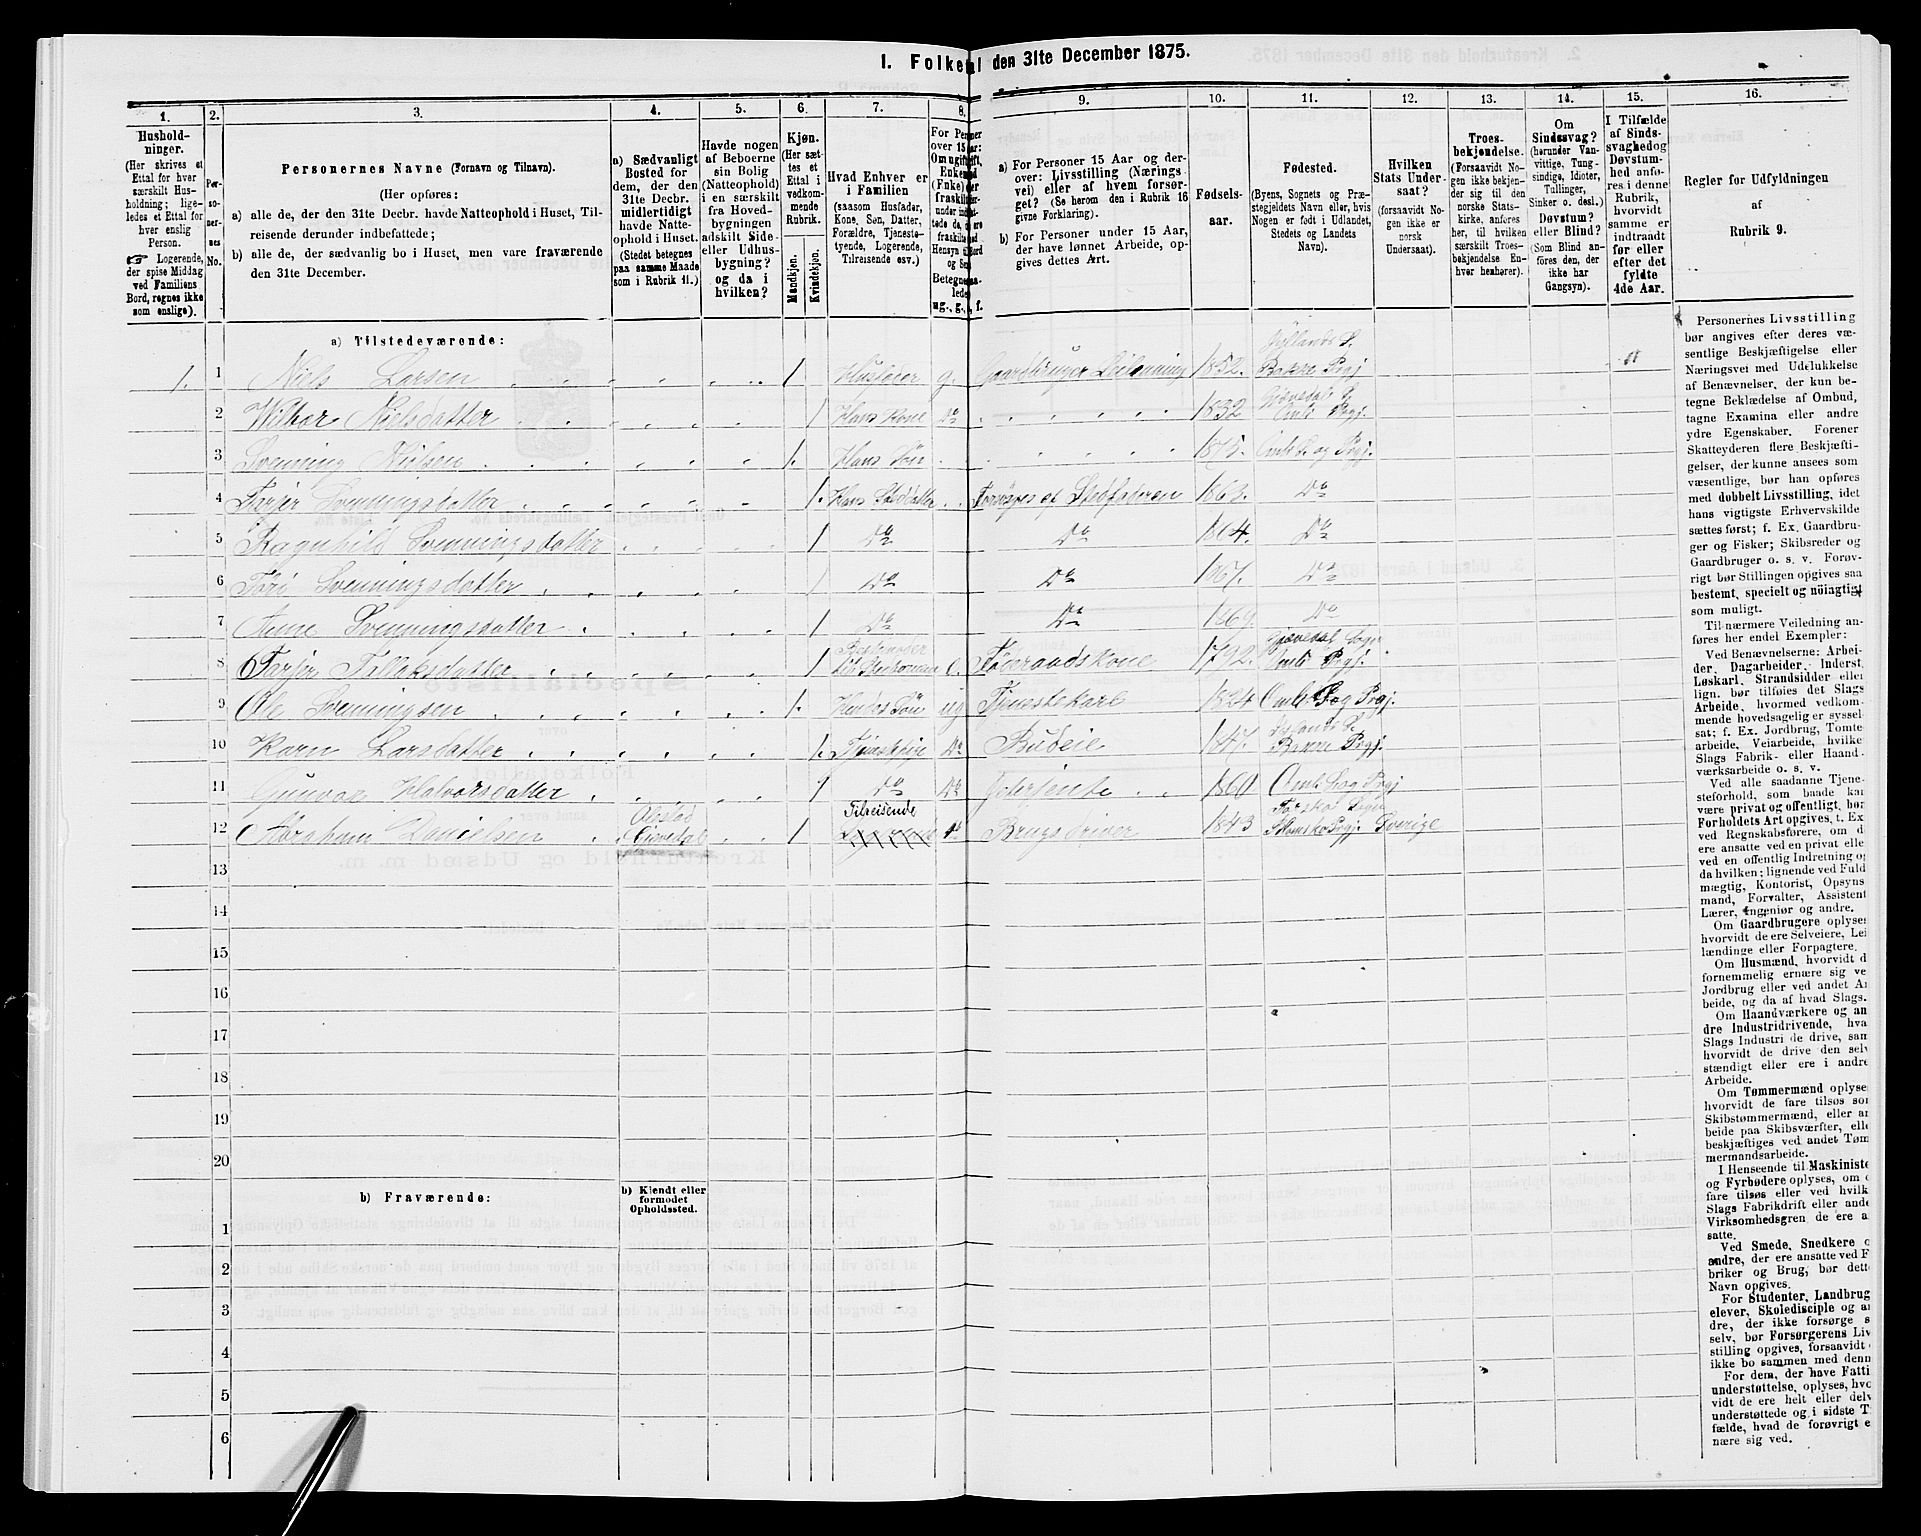 1. Folketal den 31te December 1875.
1.
2.
3.
4.
5.
6.
7.
8.
9.
10.
11.
12.
13.
14.
15.
16.
Hushold-
ninger.
(Her skrives et
Ettal for hver
særskilt Hus-
holdning; lige-
ledes et Ettal for
hver enslig
Person.
☞ Logerende,
der spise Middag
ved Familiens
Bord, regnes ikke
som enslige).
Per-
so-
ner-
nes
No.
Personernes Navne (Fornavn og Tilnavn).
(Her opføres:
a) alle de, der den 31te Decbr. havde Natteophold i Huset, Til-
reisende derunder indbefattede;
b) alle de, der sædvanlig bo i Huset, men vare fraværende
den 31te December.
a) Sædvanligt
Bosted for
dem, der den
31te Decbr.
midlertidigt
havde Natte-
ophold i Huset.
(Stedet betegnes
paa samme Maade
som i Rubrik 11.)
Havde nogen
af Beboerne
sin Bolig
(Natteophold)
i en særskilt
fra Hoved-
bygningen
adskilt Side-
eller Udhus-
bygning?
og da i
hvilken?
Kjøn.
(Her sæt-
tes et
Ettal i
vedkom-
mende
Rubrik.
Mandkjøn.
Kvindekjøn.
Hvad Enhver er
i Familien
(saasom Husfader,
Kone, Søn, Datter,
Forældre, Tjeneste-
tyende, Logerende,
Tilreisende osv.)
a) For Personer 15 Aar og der-
over: Livsstilling (Nærings-
vei) eller af hvem forsør-
get? (Se herom den i Rubrik 16
givne Forklaring).
b) For Personer under 15 Aar,
der have lønnet Arbeide, op-
gives dettes Art.
Fødsels-
aar.
Fødested.
(Byens, Sognets og Præ-
stegjeldets Navn eller, hvis
Nogen er født i Udlandet,
Stedets og Landets
Navn).
Hvilken
Stats Under-
saat?
(forsaavidt No-
gen ikke er
norsk
Undersaat).
Troes-
bekjendelse.
(Forsaavidt No-
gen ikke bekjen-
der sig til den
norske Stats-
kirke, anføres
her, til hvilken
særskilt Troes-
bekjendelse En-
hver henhører).
Om
Sindssvag?
(herunder Van-
vittige, Tung-
sindige, Idioter,
Tullinger,
Sinker o. desl.)
Døvstum?
eller Blind?
(Som Blind an-
føres den, der
ikke har
Gangsyn).
I Tilfælde
af Sinds-
svaghed og
Døvstum-
hed anfø-
res i denne
Rubrik,
hvorvidt
samme er
indtraadt
før eller
efter det
fyldte
4de Aar.
Regler for Udfyldningen
af
Rubrik 9.
a) Tilstedeværende:
1. 1 Niels Larsen 1 Husfader g. Gaardbruger Leilænning 1852. Jyllands S. Bakke Prgj
2 Wilbor Nielsdatter 1 Hans Kone Do 1832 Gjøvedal S. Omli Prgj.
3 Svenning Nilsen 1. Hans Søn 1875. Omli S. og Prgj.
4 Tarjer Svenningsdatter 1. Hans Steddatter Forsørges af Stedfaderen 1862. Do
5 Ragnhild Svenningsdatter 1 Do Do 1864. Do
6 Tori Svenningsdatter 1 Do Do 1867. Do
7 Anne Svenningsdatter 1 Do Do 1869. Do
8 Tarjer Tallaksdatter 1 e. Føderaadskone 1792. Gjøvedal Sogn Omli Prgj.
9 Ole Svenningsen 1. Hendes Søn ug Tjenestekarl 1824 Omli Sog Prgj.
10 Karn Larsdatter 1. Tjenestpige Do Budeie 1847. Jyllands S. Bakke Prgj.
11 Gunvor Halvorsdatter 1 Do Do Gjeterjente 1860 Omli Sog Prgj
12 Abraham Danielsen Gjøvedal 1 Tilreisende Do Brugsdriver 1843 Sverige
13
14
15
16
17
18
19
20
b) Fraværende:
b) Kjendt eller
formodet
Opholdssted.
1
2
3
4
5
6
Personernes Livsstilling
bør angives efter deres væ-
sentlige Beskjæftigelse eller
Næringsvei med Udelukkelse
af Benævnelser, der kun be-
tegne Beklædelse af Ombud,
tagne Examina eller andre
ydre Egenskaber. Forener
Skatteyderen flere Beskjæfti-
gelser, der kunne ansees som
væsentlige, bør han opføres
med dobbelt Livsstilling, idet
hans vigtigste Erhvervskilde
sættes først; f. Ex. Gaardbru-
ger og Fisker; Skibsreder og
Gaardbruger o. s. v. Forøv-
rigt bør Stillingen opgives saa
bestemt, specielt og nöiagtigt
som muligt.
Til nærmere Veiledning an-
føres her endel Exempler:
Ved Benævnelserne: Arbei-
der, Dagarbeider, Inderst,
Løskarl, Strandsidder eller
lign. bør tilføies det Slags
Arbeide, hvormed vedkom-
mende hovedsagelig er syssel-
sat; f. Ex. Jordbrug, Tomte-
arbeide, Veiarbeide, hvilket
Slags Fabrik- eller Haand-
værksarbeide o. s. v.
Ved alle saadanne Tjene-
steforhold, som baade kan
være privat og offentligt, bør
Forholdets Art opgives, t. Ex.
ved Regnskabsførere, om de
ere ansatte ved en privat eller
ved en offentlig Indretning og
da hvilken; lignende ved Fuld-
mægtig, Kontorist, Opsyns-
mand, Forvalter, Assistent,
Lærer, Ingeniør og andre.
Om Gaardbrugere oplyses,
hvorvidt de ere Selveiere, Lei-
lændinge eller Forpagtere.
Om Husmænd, hvorvidt de
fornemmelig ernære sig ved
Jordbrug eller ved andet Ar-
beide, og da af hvad Slags.
Om Haandværkere og an-
dre Industridrivende, hvad
Slags Industri de drive, samt
hvorvidt de drive den selv-
stændigt eller ere i andres
Arbeide.
Om Tømmermænd oplyses,
hvorvidt de fare tilsøs som
Skibstømmermænd, eller ar-
beide paa Skibsværfter, eller
beskjæftiges ved andet Tøm-
mermandsarbeide.
I Henseende til Maskinister
og Fyrbødere oplyses, om de
fare tilsøs eller ved hvilket
Slags Fabrikdrift eller anden
Virksomhedsgren de ere an-
satte.
Ved Smede, Snedkere og
andre, der ere ansatte ved Fa-
briker og Brug, bør dettes
Navn opgives.
For Studenter, Landbrugs-
elever, Skoledisciple og an-
dre, der ikke forsørge sig
selv, bør Forsørgerens Livs-
stilling opgives, forsaavidt de
ikke bo sammen med denne.
For dem, der have Fattig-
understøttelse, oplyses, hvor-
vidt de ere helt eller delvis
understøttede og i sidste Til-
fælde, hvad de forøvrigt er-
nære sig ved.